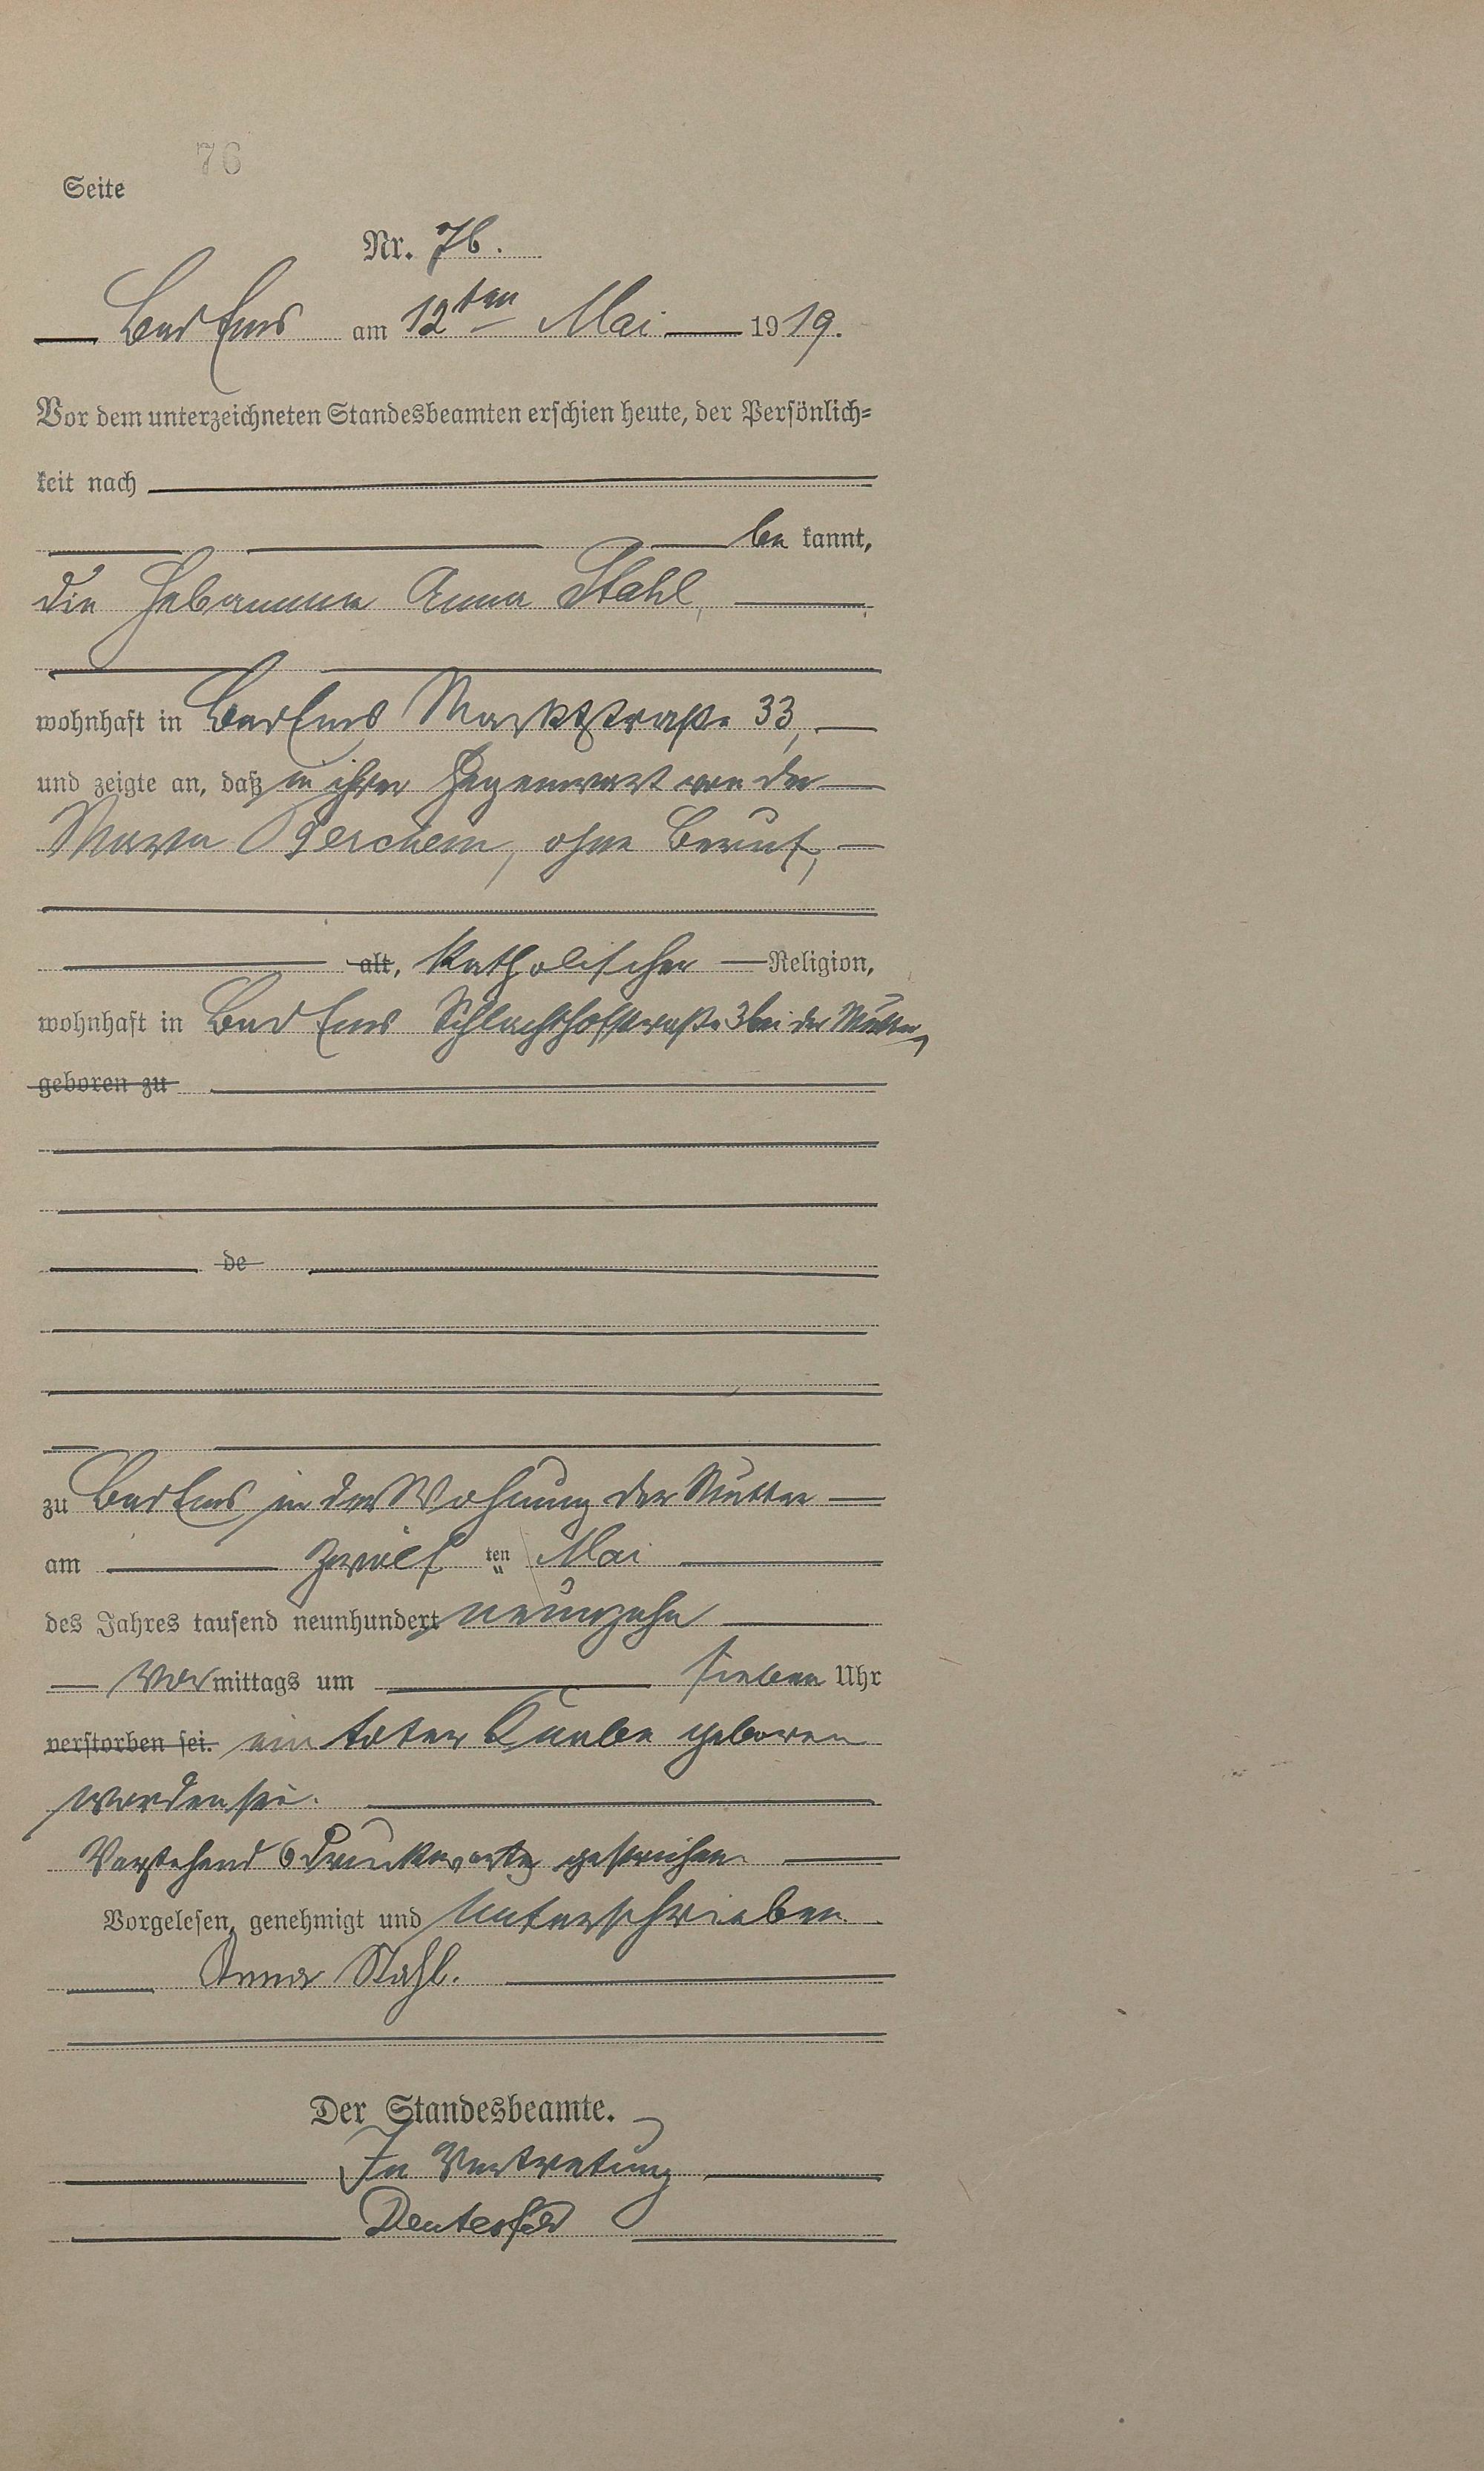 76
Seite
Nr. 76.
Bad Ems am 12ten Mai 1919.
Vor dem unterzeichneten Standesbeamten erschien heute, der Persönlich=
keit nach
be kannt,
die Hebamme Anna Stahl,
wohnhaft in Bad Ems Marktstraße 33,
und zeigte an, daß in ihrer Gegenwart von der
Maria, ohne Beruf,
alt, katholischer Religion,
wohnhaft in Bad Ems Schlachthofstraße 3 bei der Mutter,
geboren zu
de
zu Bad Ems in der Wohnung der Mutter
am zwölf ten Mai
des Jahres tausend neunhundert neunzehn
Vormittags um sieben Uhr
verstorben sei. ein toter Knabe geboren
worden sei.
Vorstehend 6 Druckworte gestrichen.
Vorgelesen, genehmigt und unterschrieben.
Anna Stahl.
Der Standesbeamte.
In Vertretung